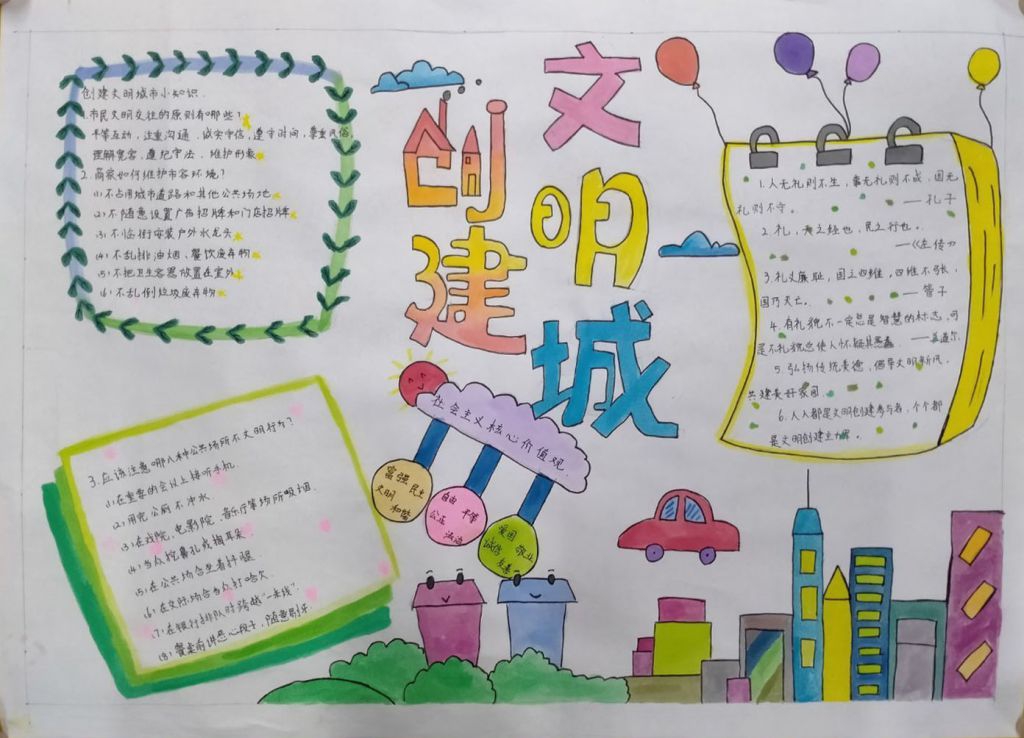 创建文明城
创建文明城市小知识.
1.市民文明交往的原则有哪些?
平等互动、注重沟通、诚实守信、遵守时间、尊重风俗、
理解宽容、遵纪守法、维护形象
2.商家如何维护市容环境?
(1)不占用城市道路和其他公共场地
(2)不随意设置广告招牌和门店招牌
(3)不临街安装户外水龙头
(4)不乱排油烟、餐饮废弃物
(5)不把卫生容器放置在室外
(6)不乱倒垃圾废弃物
3.应该注意哪八种公共场所不文明行为?
(1)在重要的会议上接听手机.
(2)用完公厕不冲水.
(3)在戏院、电影院、音乐厅等场所吸烟.
(4)当众挖鼻孔或掏耳朵.
(5)在公共场合坐着抖腿.
(6)在交际场合当众打哈欠.
(7)在银行排队时跨越"一米线".
(8)餐桌前讲恶心段子,随意剔牙.
社会主义核心价值观.
富强 民主
文明 和谐
自由 平等
公正 法治
爱国 敬业
诚信 友善
1.人无礼则不生,事无礼则不成,国无
礼则不宁。
——孔子
2.礼,天之经也,民之行也。
——《左传》
3.礼义廉耻,国之四维,四维不张,
国乃灭亡。 ——管子
4.有礼貌不一定总是智慧的标志,可
是不礼貌总使人怀疑其愚蠢.
5.弘扬传统美德,倡导文明新风.
共建美好家园.
6.人人都是文明创建参与者,个个都
是文明创建主力军。